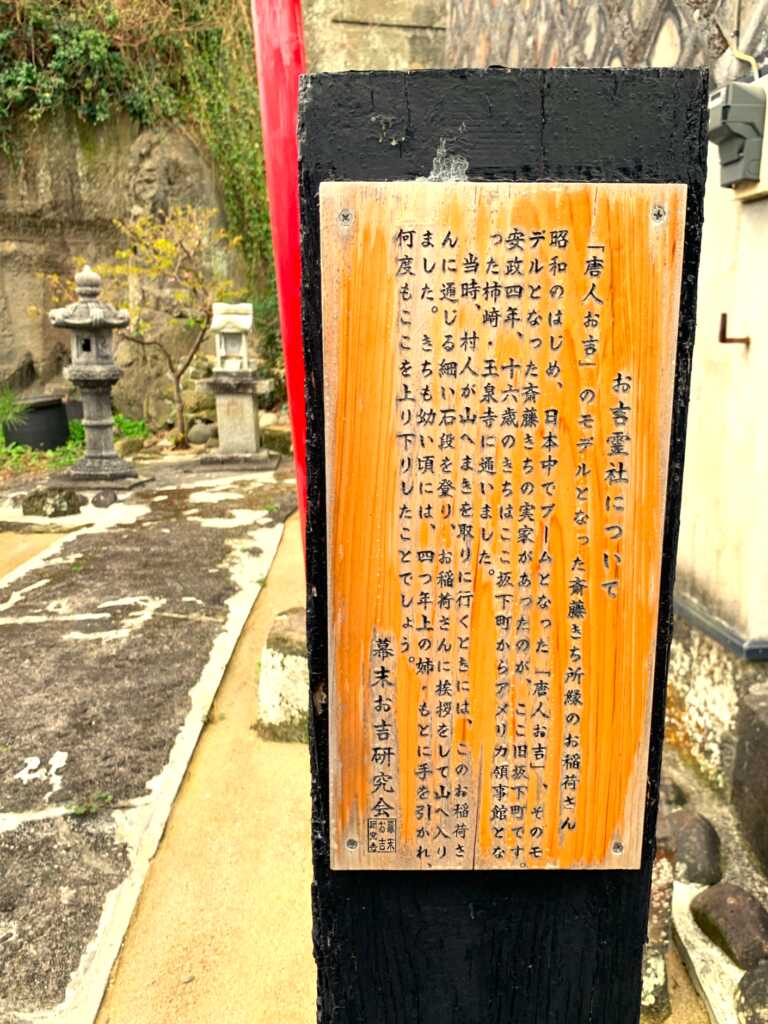 お吉霊社について
「唐人お吉」のモデルとなった斎藤きち所縁のお稲荷さん
昭和のはじめ、日本中でブームとなった「唐人お吉」、そのモ
デルとなった斎藤きちの実家があったのが、ここ旧坂下町です。
安政四年、十六歳のきちはここ坂下町からアメリカ領事館とな
った柿崎・玉泉寺に通いました。
当時、村人が山へまきを取りに行くときには、このお稲荷さ
んに通じる細い石段を登り、お稲荷さんに挨拶をして山へ入り
ました。きちも幼い頃には、四つ年上の姉・もとに手を引かれ、
何度もここを上り下りしたことでしょう。
幕末お吉研究会
幕末
お吉
研究会